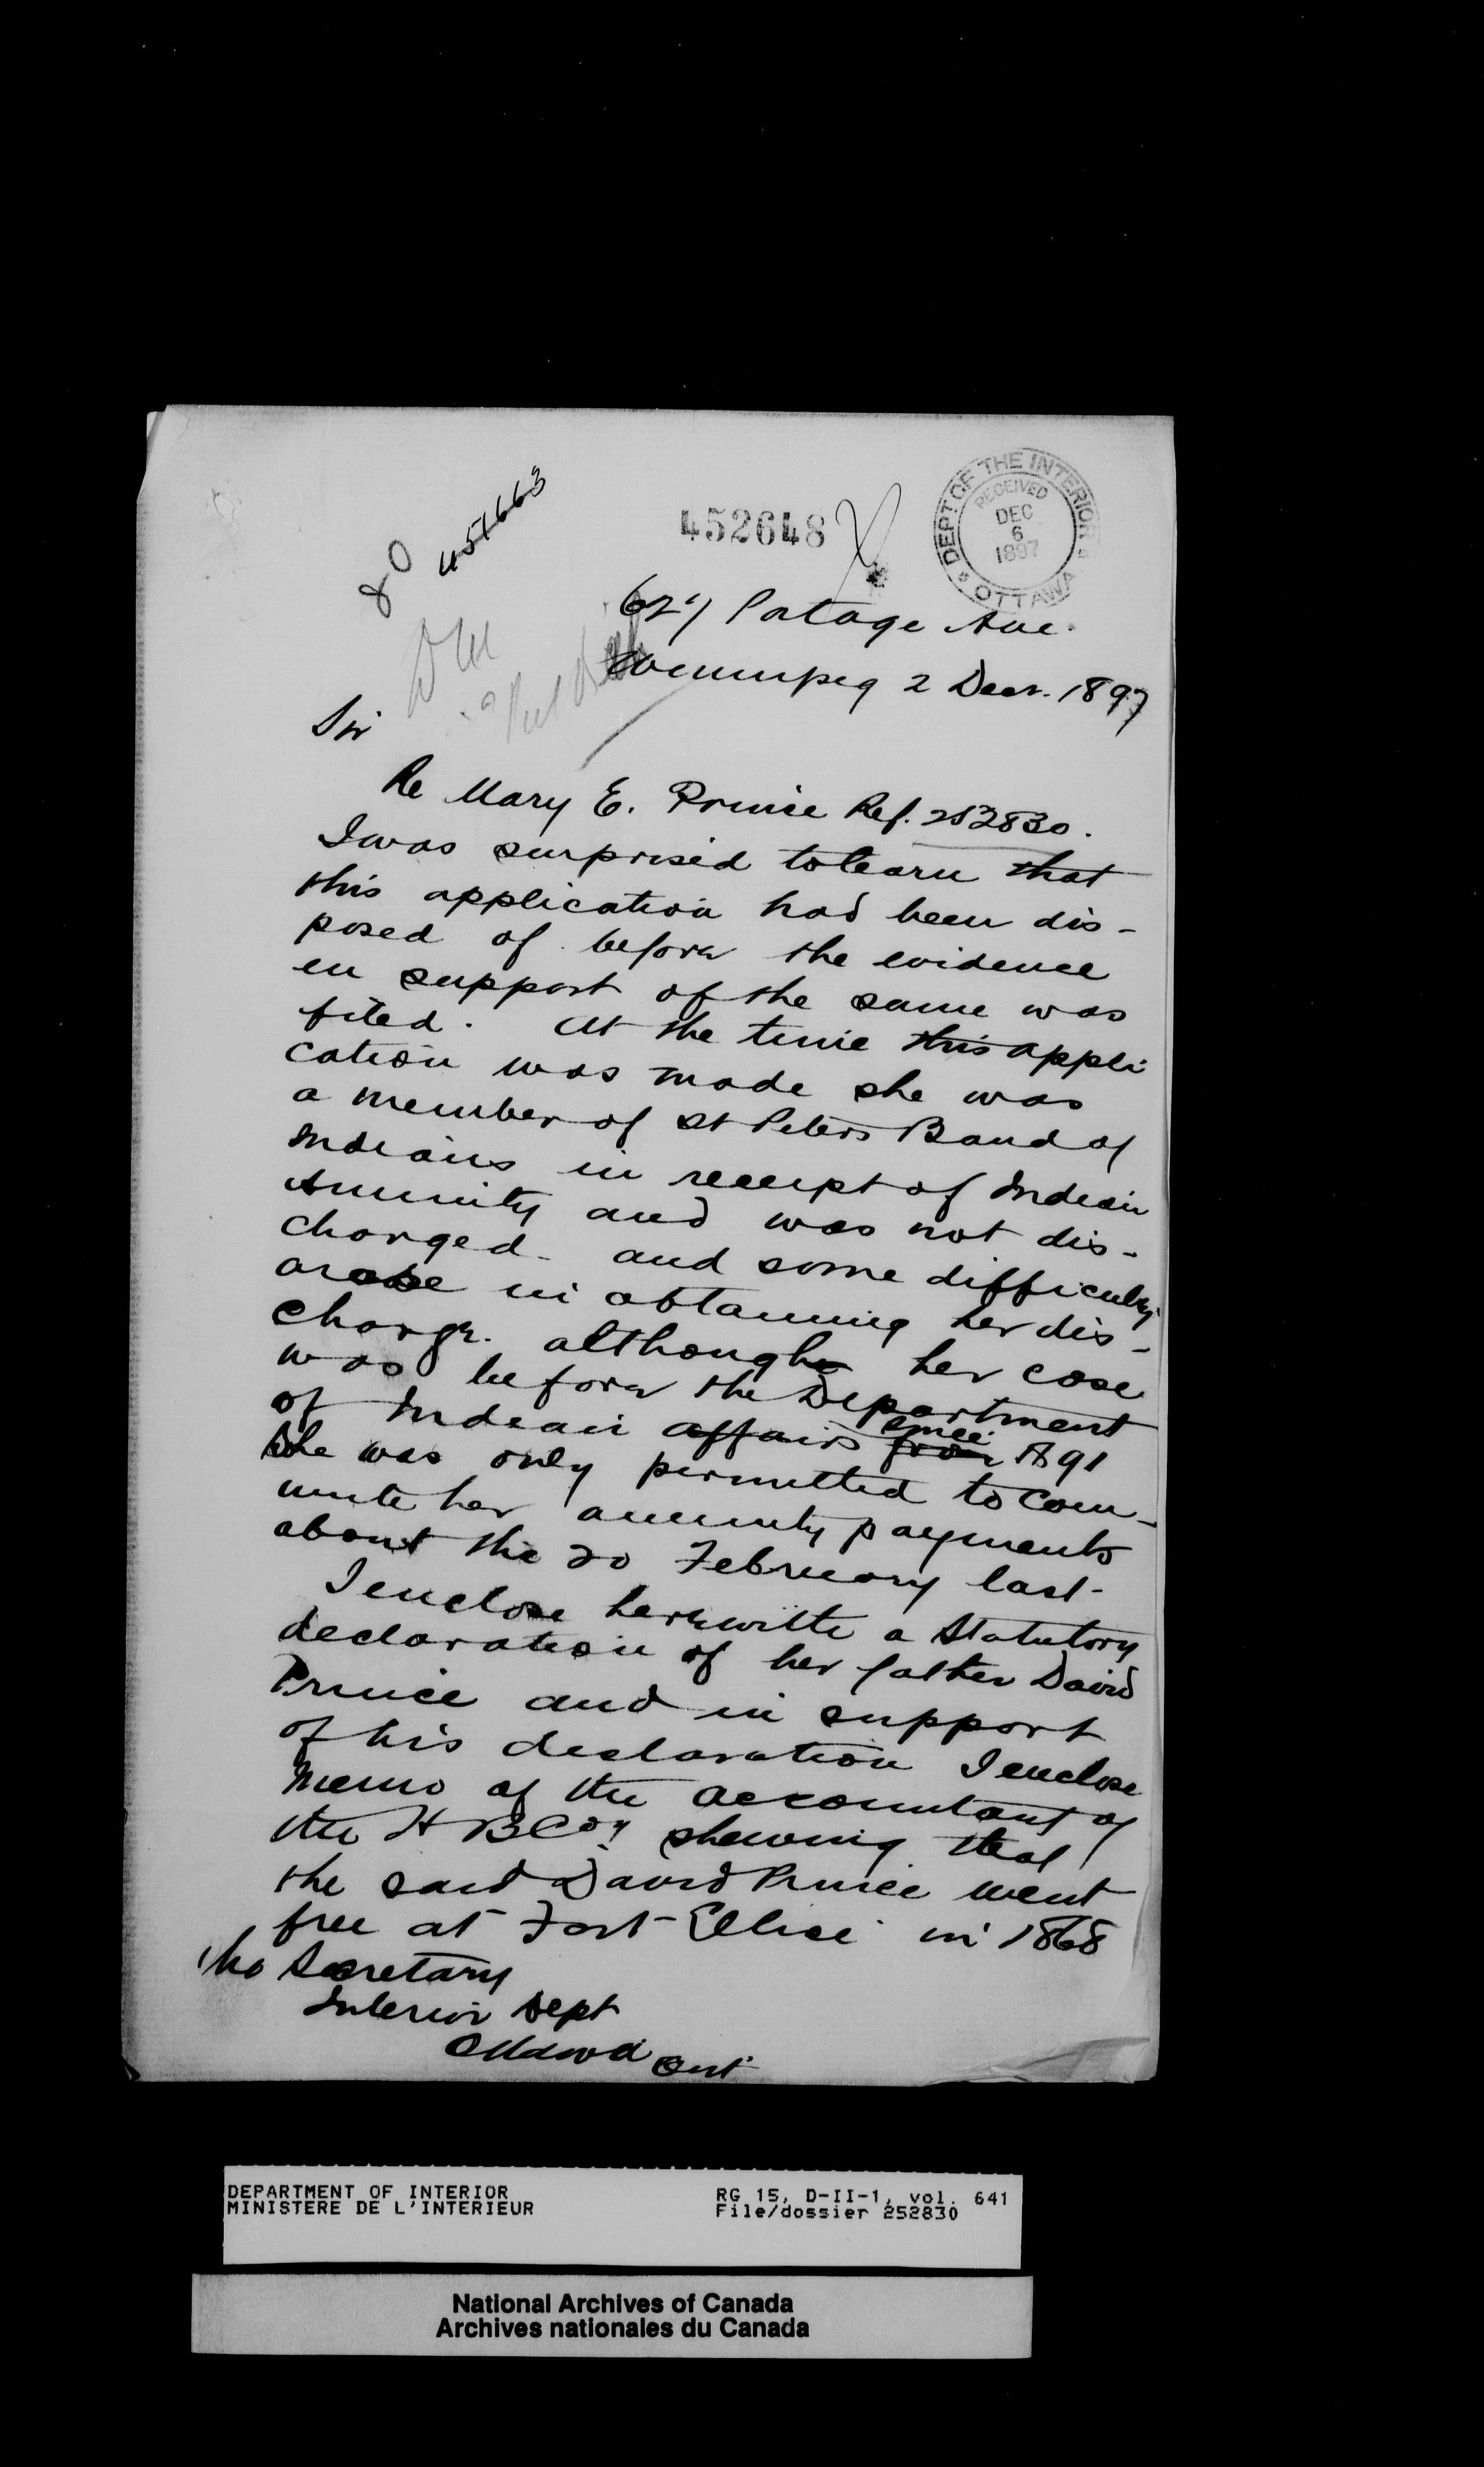 80
451663
452648
DEPT OF THE INTERIOR
RECEIVED
DEC
6
1897
OTTAWA
627 Portage Ave.
Winnipeg 2 Decr. 1897
Sir
Re Mary E. Prince Ref. 252830.
I was surprised to learn that
this application had been dis-
posed of before the evidence
in support of the same was
filed. At the time this appli
cation was made she was
a member of St Peters Band of
Indians in receipt of Indian
Annuity and was not dis-
charged - and some difficulty
arose in obtaining her dis-
charge. although her case
was before the Department
of Indian affairs since 1891
She was only permitted to com-
mute her annuity payments
about the 20 February last -
I enclose herewith a Statutory
declaration of her father David
Prince and in support
of his declaration I enclose
Memo of the accountant of
the H B Coy shewing that
the said David Prince went
free at Fort Ellice in 1868
The Secretary
Interior Dept
Ottawa Ont
DEPARTMENT OF INTERIOR
MINISTERE DE L'INTERIEUR
RG 15, D-II-1, vol. 641
File/dossier 252830
National Archives of Canada
Archives nationales du Canada